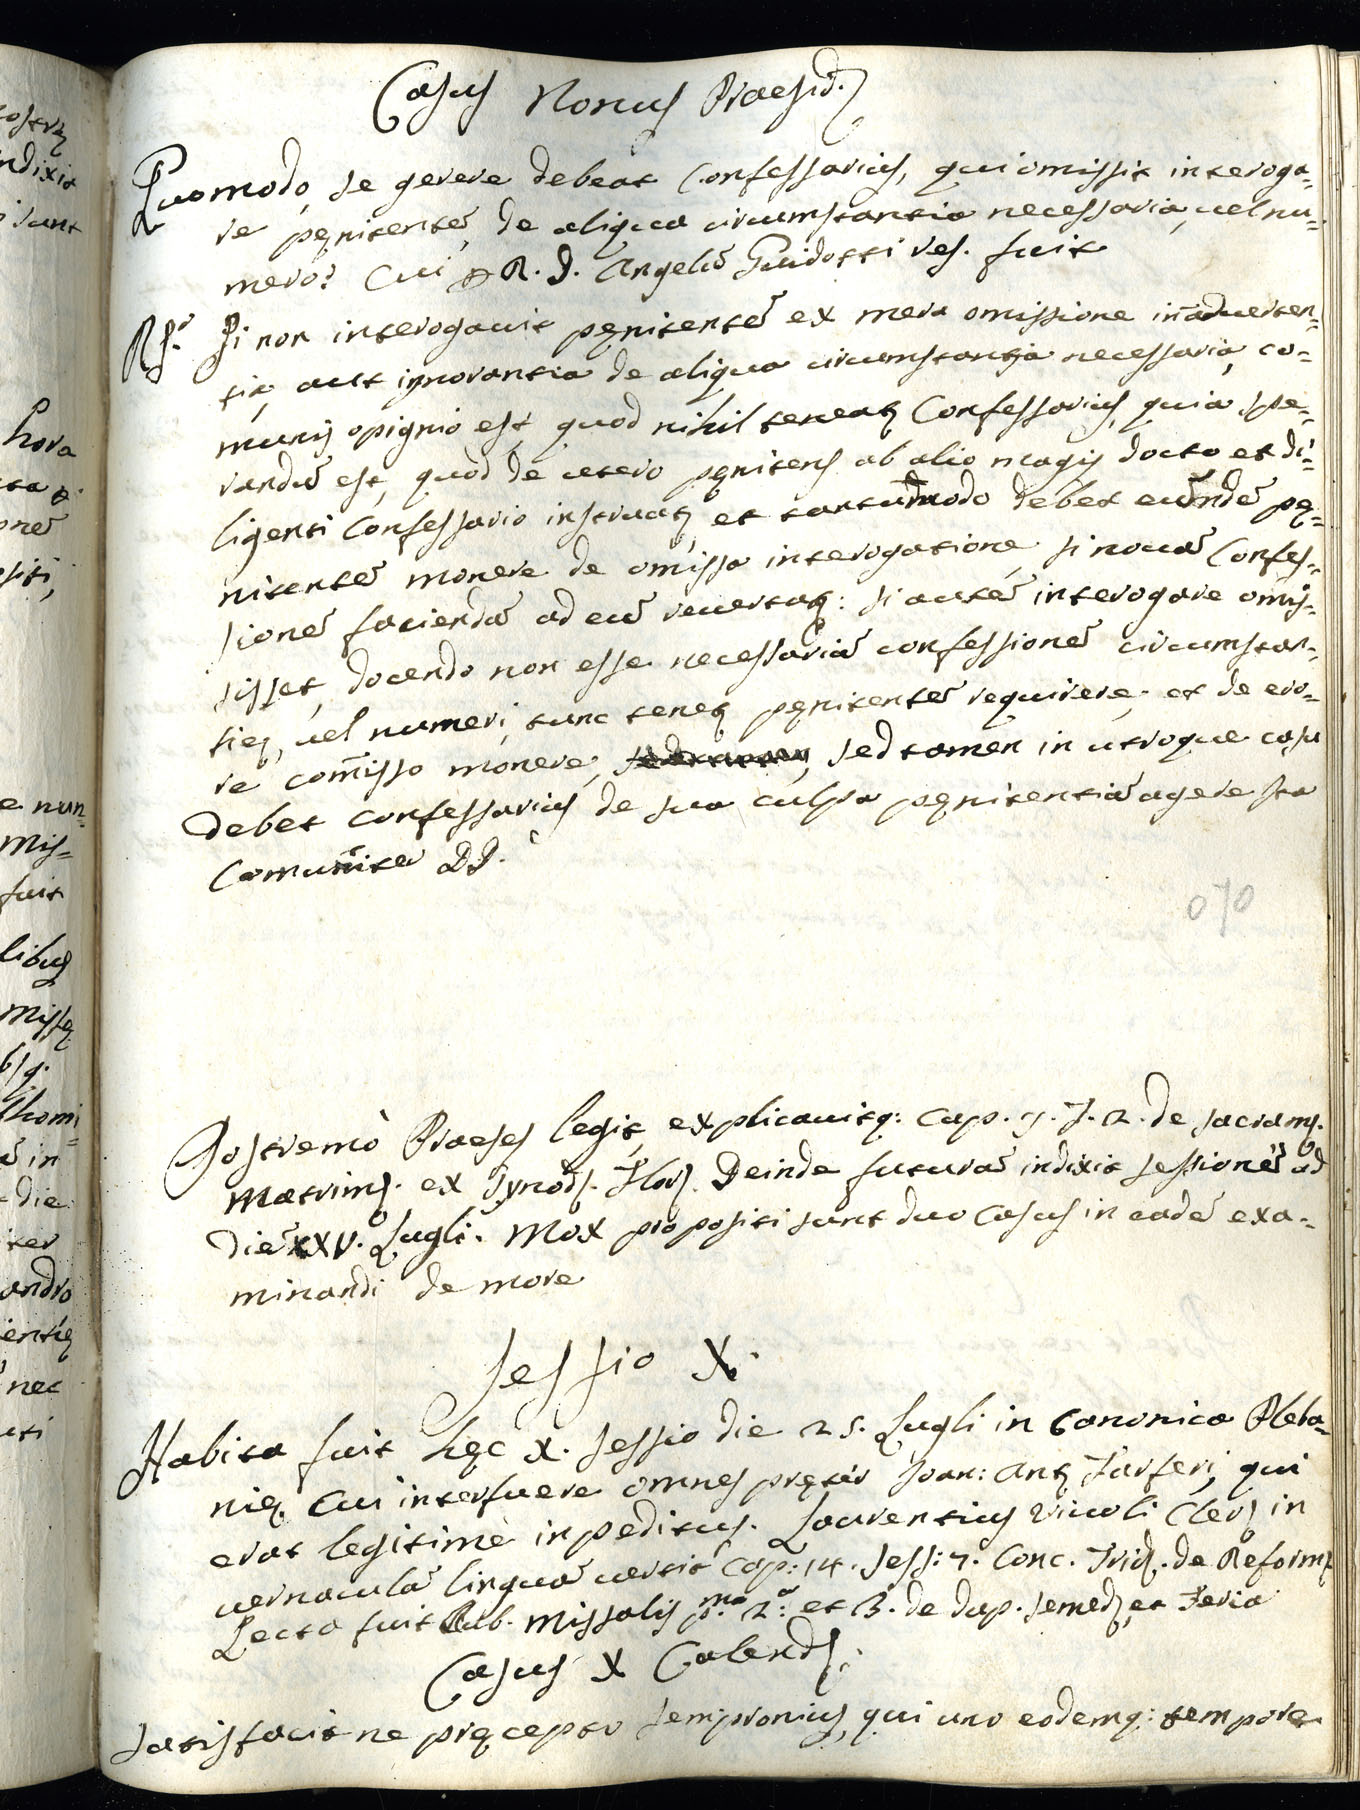 Casus Nonus Praesid.
Quomodo se gerere debeat Confessarius, qui omissit interoga-
re pęnitentẽ de aliqua circumstantia necessaria, uel nu-
mero? Cui R. D. Angelũ Guidotti res. fuit
Rs.º Si non interogauit pęnitentẽ ex mera omissione inaduerten-
tia, aut ignorantia de aliqua circumstantia necessaria, co-
munis opignio est, quod nihil teneatꝫ Confessarius, quia spe-
randũ est, quod de cetero pęnitens ab alio magis docto et di-
ligenti Confessario instruatꝫ, et tantũmodo debet eũndẽ pę-
nitentẽ monere de omissa interogatione, si nouã Confes-
sionẽ faciendã ad eũ reuertatꝫ: si autẽ interogare omis-
sisset, docendo non esse necessariã confessionẽ circumstan-
tię, uel numeri, tunc tenetꝫ pęnitentẽ requirere, et de ero-
re comisso monere, sed tamen in utroque casu
debet Confessarius de sua culpa pęnitentiã agere Ita
Comuniter DD.
070
Postremò Praeses legit, explicauitq: Cap. 7. J. 2. de sacramꝫ.
Matrimꝫ. ex Synodꝫ. Florꝫ. Deinde futurã indixit sessionẽ ad
diẽ XXV. Lugli. Mox propositi sunt duo Casus in eadẽ exa-
minandi de more
Sessio X.
Habita fuit hęc X. sessio die 25. Lugli in Canonica Pleba-
nię. Cui interfuere omnes pręter Joan: Antꝫ Tarferi, qui
erat legitimè inpeditus. Laurentius Viuoli Clerꝫ in
uernaculã linguã uertit Cap: 14. Sess: 7. Conc. Tridꝫ. de Reformꝫ
Lecta fuit Rub. Missalis p.ma 2.a et 3. de dup. semedꝫ, et Feria
Casus X Calendꝫ.
Satisfacit ne pręcepto Sempronius, qui uno eodemq: tempore